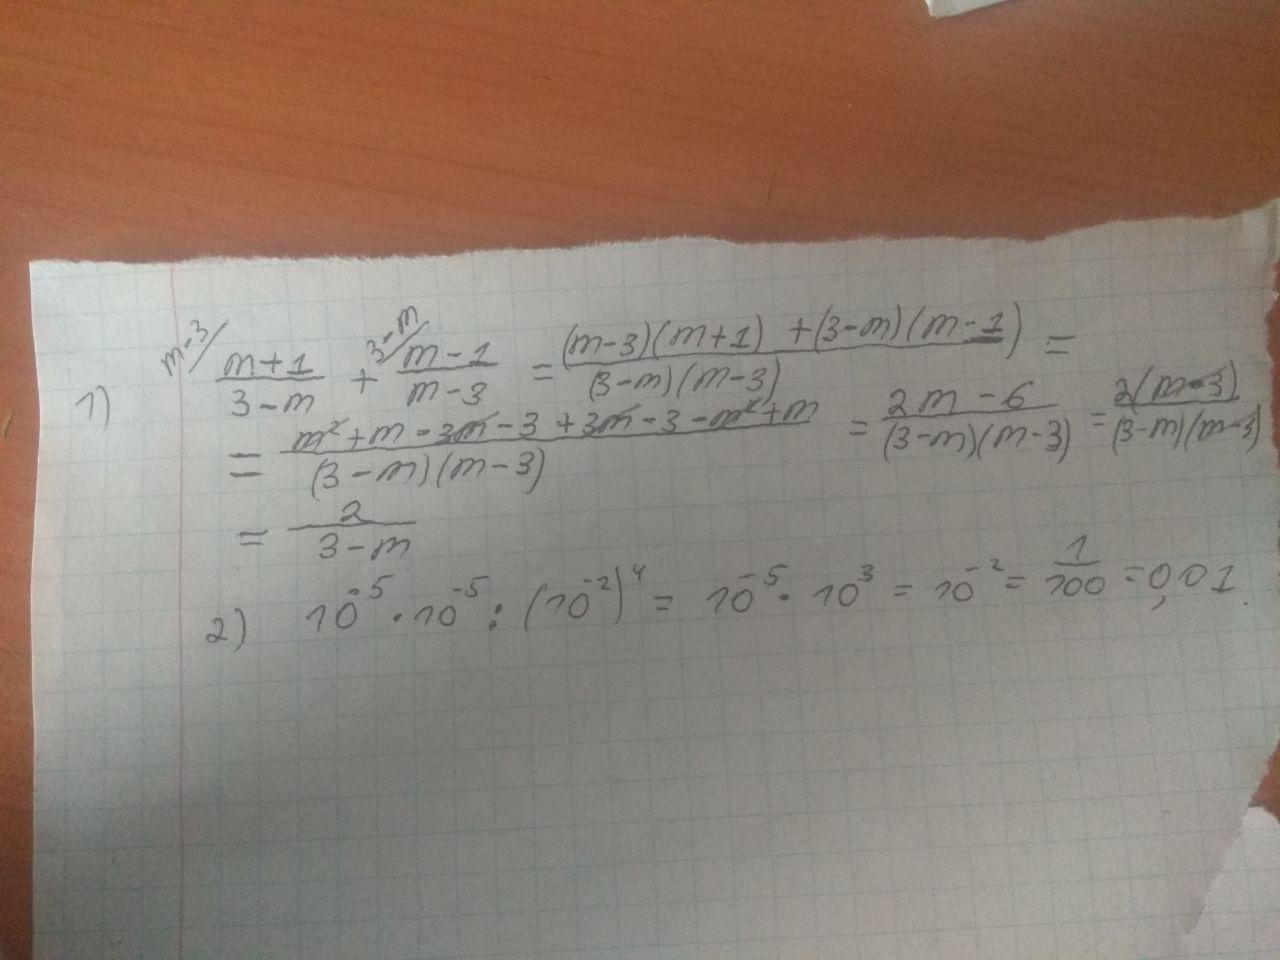 1) m-3/ (m+1)/(3-m) + 3-m/ (m-1)/(m-3) = ((m-3)(m+1) + (3-m)(m-1))/((3-m)(m-3)) =
= (m²+m-3m-3+3m-3-m²+m)/((3-m)(m-3)) = (2m-6)/((3-m)(m-3)) = (2(m-3))/((3-m)(m-3))
= 2/(3-m)
2) 10⁻⁵ · 10⁻⁵ : (10⁻²)⁴ = 10⁻⁵ · 10³ = 10⁻² = 1/100 = 0,01.